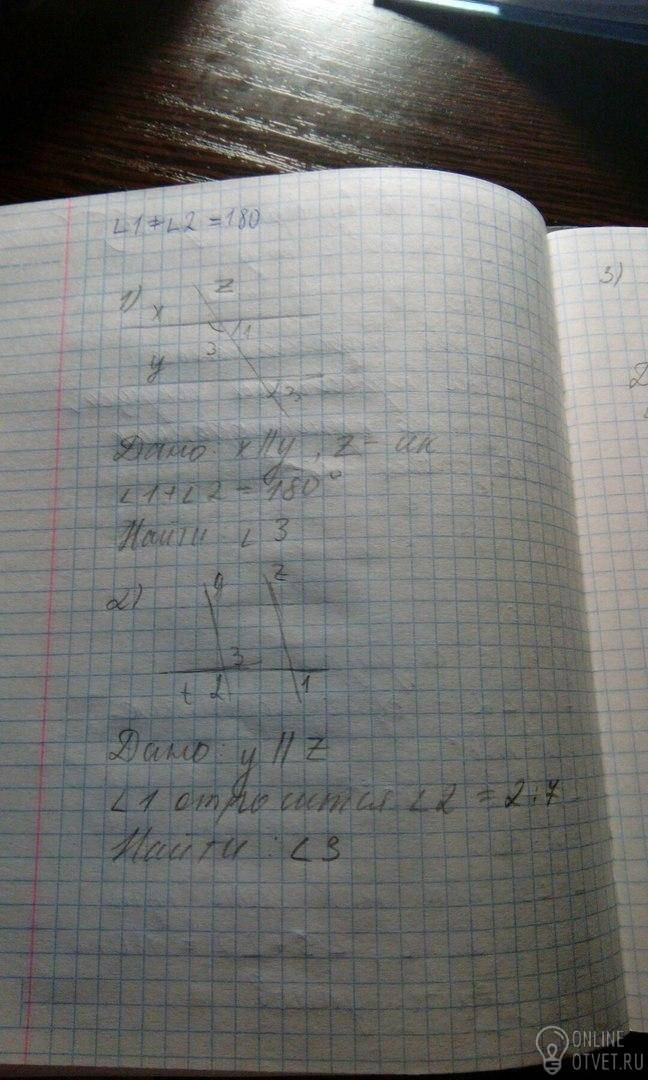 ∠1+∠2=180
3)
1)
z
x
1
3
y
Дано: x||y, z-
∠1+∠2=180°
Найти ∠3
2)
y z
3
t 2 1
Дано: y||z
∠1 относится ∠2=2:7
Найти: ∠3
ONLINE
OTVET.RU